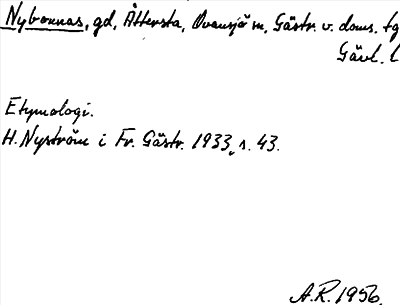 Nybonnas, gd, Åttersta, Ovansjö sn, Gästr. v. doms. tg
Gävl. l
Etymologi.
H. Nyström i Fr. Gästr. 1933, s. 43.
A.R. 1956.